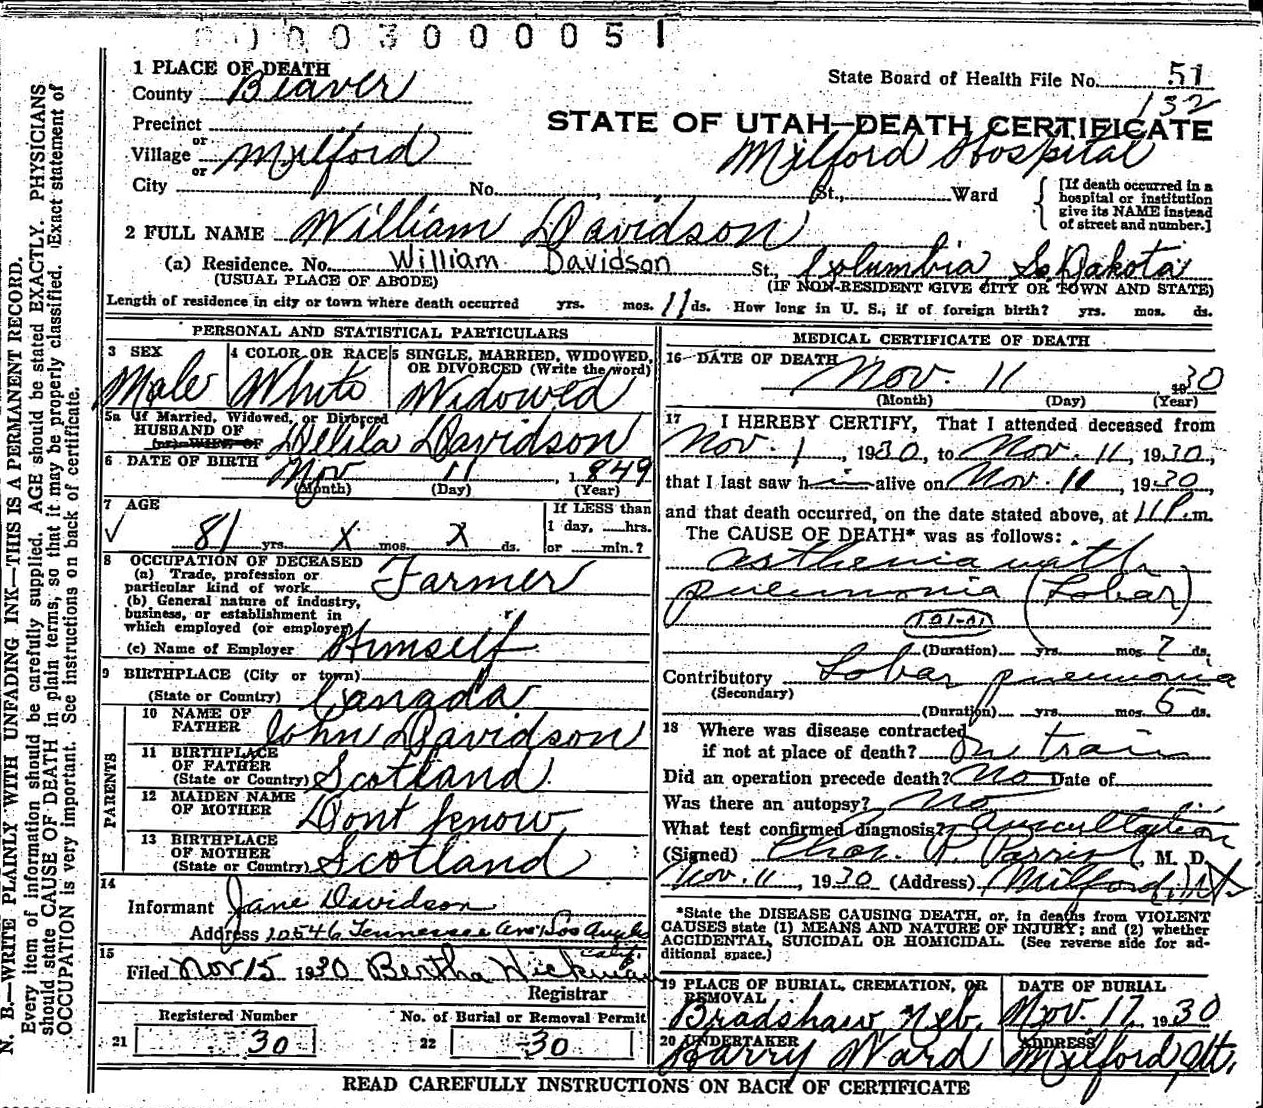 0 0 0 3 0 0 0 0 5 1
1 PLACE OF DEATH
County Beaver
State Board of Health File No. 51
132
Precinct
or
Village Milford
or
City No. St., Ward
STATE OF UTAH—DEATH CERTIFICATE
Milford Hospital
[If death occurred in a
hospital or institution
give its NAME instead
of street and number.]
2 FULL NAME William Davidson
(a) Residence. No. William Davidson St. Columbia, So Dakota
(USUAL PLACE OF ABODE) (IF NON-RESIDENT GIVE CITY OR TOWN AND STATE)
Length of residence in city or town where death occurred yrs. mos. 11 ds. How long in U. S., if of foreign birth? yrs. mos. ds.
PERSONAL AND STATISTICAL PARTICULARS
3 SEX
Male
4 COLOR OR RACE
White
5 SINGLE, MARRIED, WIDOWED,
OR DIVORCED (Write the word)
Widowed
5a If Married, Widowed, or Divorced
HUSBAND OF
(or) WIFE OF Delila Davidson
6 DATE OF BIRTH Nov 11, 1849
(Month) (Day) (Year)
7 AGE
81 yrs. X mos. X ds.
If LESS than
1 day, hrs.
or min.?
8 OCCUPATION OF DECEASED
(a) Trade, profession or
particular kind of work Farmer
(b) General nature of industry,
business, or establishment in
which employed (or employer)
(c) Name of Employer Himself
9 BIRTHPLACE (City or town)
(State or Country) Canada
PARENTS
10 NAME OF
FATHER John Davidson
11 BIRTHPLACE
OF FATHER
(State or Country) Scotland
12 MAIDEN NAME
OF MOTHER Dont know
13 BIRTHPLACE
OF MOTHER
(State or Country) Scotland
14
Informant Jane Davidson
Address 10546 Tennessee Ave, Los Angeles
Calif.
15
Filed Nov 15 1930 Bertha Wickman
Registrar
Registered Number
21 30
No. of Burial or Removal Permit
22 30
MEDICAL CERTIFICATE OF DEATH
16 DATE OF DEATH
Nov. 11 1930
(Month) (Day) (Year)
17 I HEREBY CERTIFY, That I attended deceased from
Nov. 1, 1930, to Nov. 11, 1930,
that I last saw him alive on Nov. 11, 1930,
and that death occurred, on the date stated above, at 11 P.m.
The CAUSE OF DEATH* was as follows:
asthenia with
pneumonia (Lobar)
101-01
(Duration) yrs. mos. 7 ds.
Contributory Lobar pneumonia
(Secondary)
(Duration) yrs. mos. 6 ds.
18 Where was disease contracted
if not at place of death? On train
Did an operation precede death? No Date of
Was there an autopsy? No
What test confirmed diagnosis? Auscultation
(Signed) Chas. P. Parrish, M. D.
Nov. 11, 1930 (Address) Milford, Ut
*State the DISEASE CAUSING DEATH, or, in deaths from VIOLENT
CAUSES state (1) MEANS AND NATURE OF INJURY; and (2) whether
ACCIDENTAL, SUICIDAL OR HOMICIDAL. (See reverse side for ad-
ditional space.)
19 PLACE OF BURIAL, CREMATION, OR
REMOVAL
Bradshaw, Neb.
DATE OF BURIAL
Nov. 17, 1930
20 UNDERTAKER
Harry Ward
ADDRESS
Milford, Ut.
READ CAREFULLY INSTRUCTIONS ON BACK OF CERTIFICATE
N. B.—WRITE PLAINLY WITH UNFADING INK—THIS IS A PERMANENT RECORD.
Every item of information should be carefully supplied. AGE should be stated EXACTLY. PHYSICIANS
should state CAUSE OF DEATH in plain terms, so that it may be properly classified. Exact statement of
OCCUPATION is very important. See instructions on back of certificate.